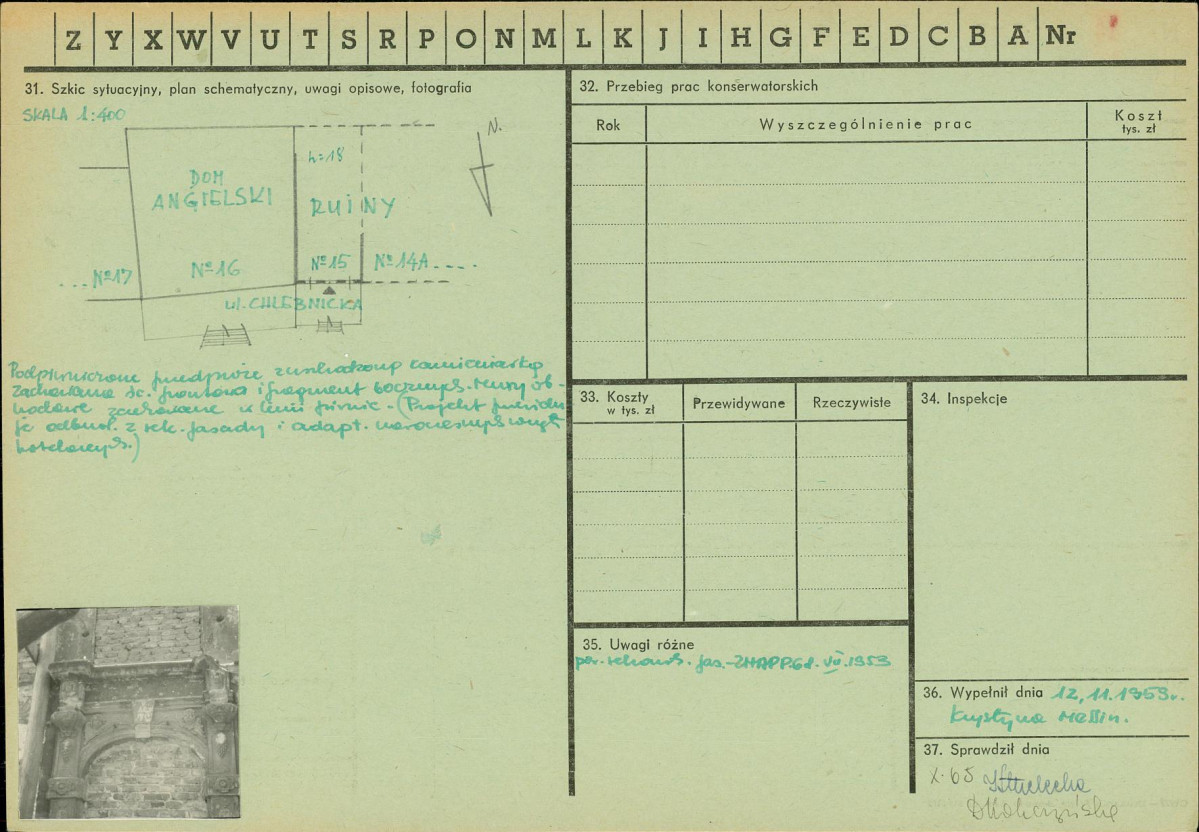 Z Y X W V U T S R P O N M L K J I H G F E D C B A Nr
31. Szkic sytuacyjny, plan schematyczny, uwagi opisowe, fotografia
SKALA 1:400
N.
h=18
DOM
ANGIELSKI
RUINY
...№17
№16
№15
№14A....
ul. CHLEBNICKA
zachowana śc. frontowa i fragment bocznych. Mury ob-
wodowe zachowane w linii piwnic. (Projekt przewidu-
je odbud. z rek. fasady i adapt. wnętrz
hotelowych.)
32. Przebieg prac konserwatorskich
Rok
Wyszczególnienie prac
Koszt
tys. zł
33. Koszty
w tys. zł
Przewidywane
Rzeczywiste
34. Inspekcje
35. Uwagi różne
fas.
1959
36. Wypełnił dnia 12,11.1959r.
Krystyna Mellin.
37. Sprawdził dnia
X.65